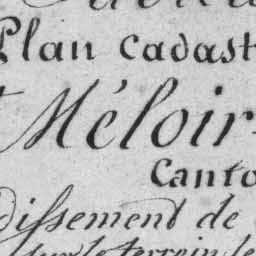 Plan cadast
Méloir
Canto
dissement de
sur le terrein le